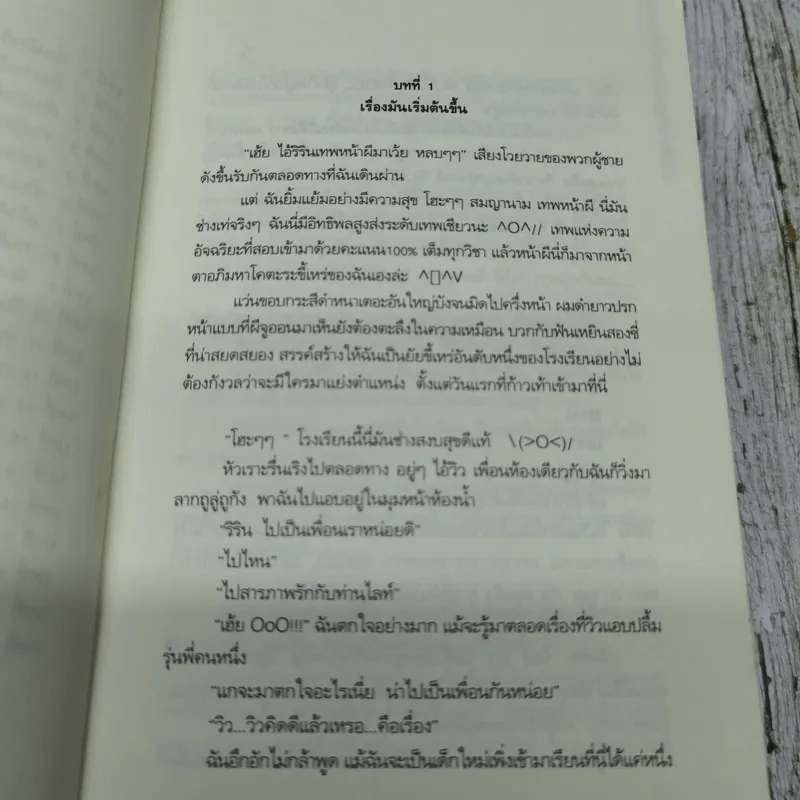 บทที่ 1
เรื่องมันเริ่มต้นขึ้น
"เฮ้ย ไอ้ริรินเทพหน้าผีมาเว้ย หลบๆๆ" เสียงโวยวายของพวกผู้ชาย
ดังขึ้นรับกันตลอดทางที่ฉันเดินผ่าน
แต่ ฉันยิ้มแย้มอย่างมีความสุข โฮะๆๆ สมญานาม เทพหน้าผี นี่มัน
ช่างเท่จริงๆ ฉันนี่มีอิทธิพลสูงส่งระดับเทพเชียวนะ ^O^// เทพแห่งความ
อัจฉริยะที่สอบเข้ามาด้วยคะแนน100% เต็มทุกวิชา แล้วหน้าผีนี่ก็มาจากหน้า
ตาอภิมหาโคตะระขี้เหร่ของฉันเองล่ะ ^[]^V
แว่นขอบกระสีดำหนาเตอะอันใหญ่บังจนมิดไปครึ่งหน้า ผมดำยาวปรก
หน้าแบบที่ผีจูออนมาเห็นยังต้องตะลึงในความเหมือน บวกกับฟันเหยินสองซี่
ที่น่าสยดสยอง สรรค์สร้างให้ฉันเป็นยัยขี้เหร่อันดับหนึ่งของโรงเรียนอย่างไม่
ต้องกังวลว่าจะมีใครมาแย่งตำแหน่ง ตั้งแต่วันแรกที่ก้าวเท้าเข้ามาที่นี่
"โฮะๆๆ " โรงเรียนนี้นี่มันช่างสงบสุขดีแท้ \(>O<)/
หัวเราะรื่นเริงไปตลอดทาง อยู่ๆ ไอ้วิว เพื่อนห้องเดียวกับฉันก็วิ่งมา
ลากถูลู่ถูกัง พาฉันไปแอบอยู่ในมุมหน้าห้องน้ำ
"ริริน ไปเป็นเพื่อนเราหน่อยดิ"
"ไปไหน"
"ไปสารภาพรักกับท่านไลท์"
"เฮ้ย OoO!!!" ฉันตกใจอย่างมาก แม้จะรู้มาตลอดเรื่องที่วิวแอบปลื้ม
รุ่นพี่คนหนึ่ง
"แกจะมาตกใจอะไรเนี่ย น่าไปเป็นเพื่อนกันหน่อย"
"วิว...วิวคิดดีแล้วเหรอ...คือเรื่อง"
ฉันอึกอักไม่กล้าพูด แม้ฉันจะเป็นเด็กใหม่เพิ่งเข้ามาเรียนที่นี่ได้แค่หนึ่ง